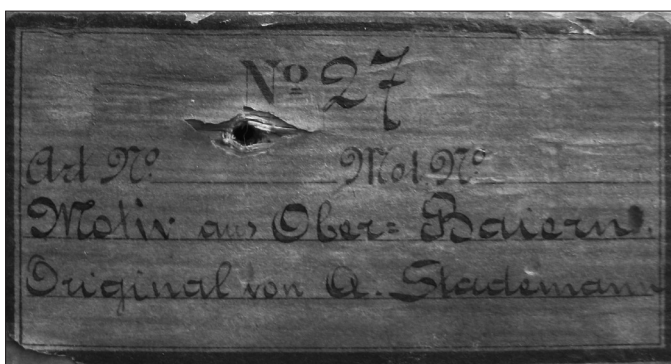 No 27
Art No. Mot. No.
Motiv aus Ober= Baiern.
Original von A. Stademann